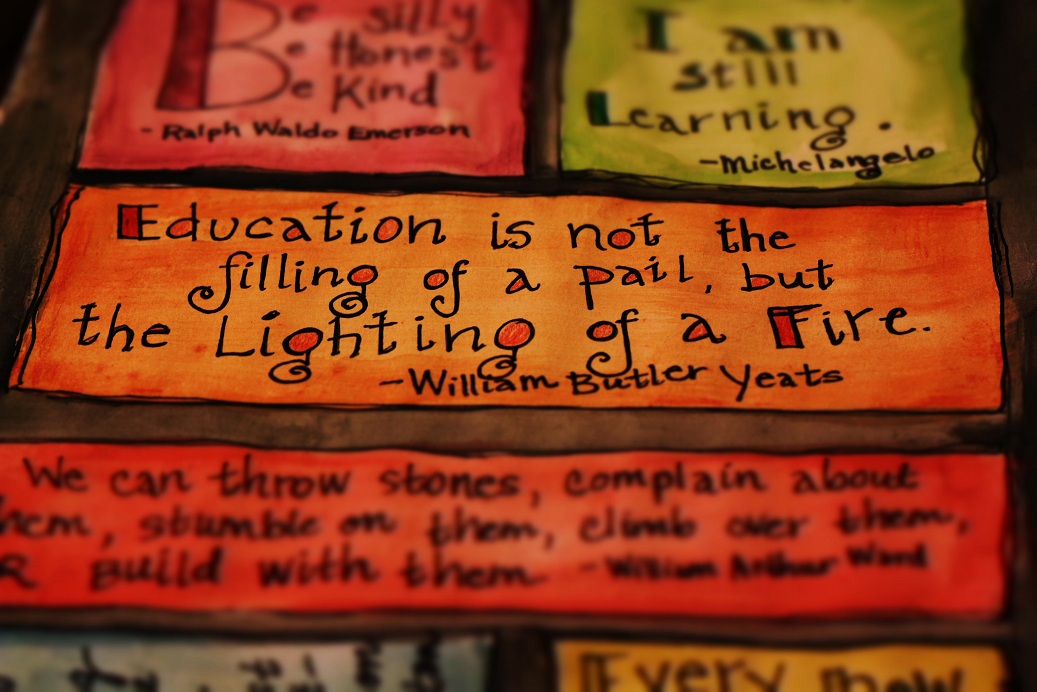 Be silly
Be Honest
Be Kind
- Ralph Waldo Emerson
I am
still
Learning.
- Michelangelo
Education is not the
filling of a pail, but
the Lighting of a Fire.
- William Butler Yeats
We can throw stones, complain about
them, stumble on them, climb over them,
OR Build with them - William Arthur Ward
Every now